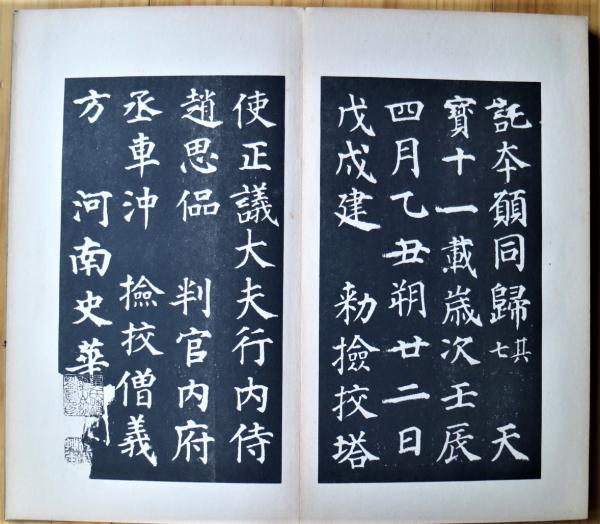 託本願同歸其七 天
寳十一載歳次壬辰
四月乙丑朔廿二日
戊戌建 勑撿挍塔
使正議大夫行内侍
趙思偘 判官内府
丞車沖 撿挍僧義
方 河南史華